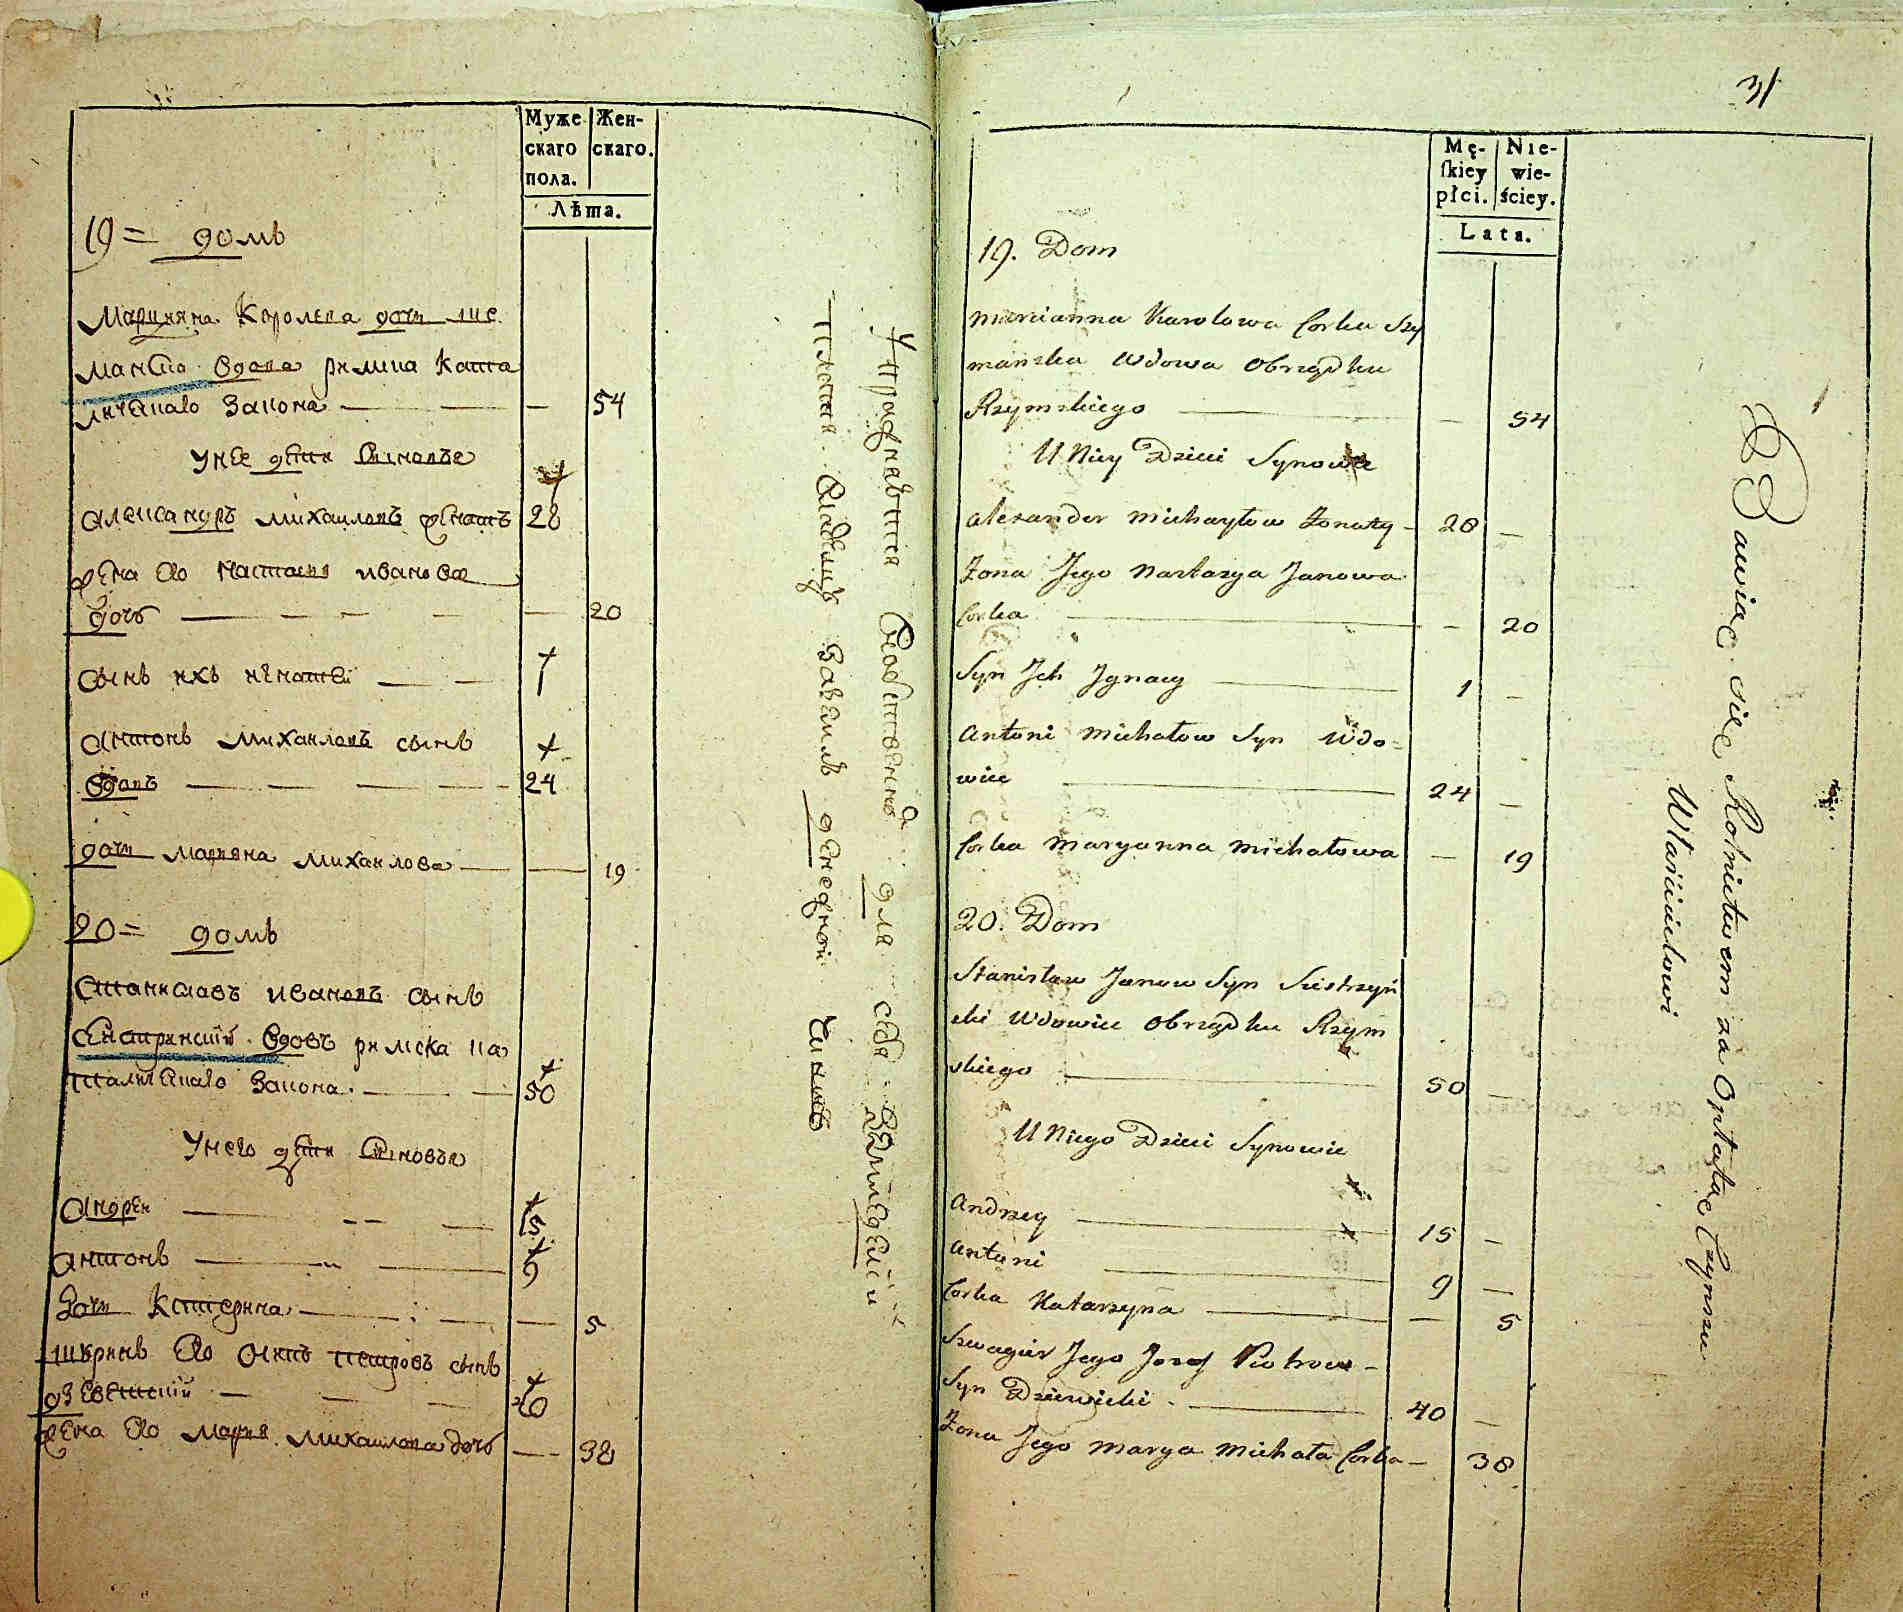 Муже- Жен-
скаго скаго.
пола.
Лѣта.
19 = домъ
Марияна Королева дочи ши
манска вдова римскаката
личскаго закона — 54
У нее дети сыновѣе
Александръ Михайловъ женатъ 28
жена его Настасия Иванова
дочь — 20
сынъ ихъ игнатей 1
Антонъ Михайловъ сынъ
вдовъ 24
дочи Марияна Михайлова — 19
20 = домъ
Станиславъ Ивановъ сынъ
вдовъ римска ка
таличскаго закона 50
У него дети сыновья
Андрей 15
Антонъ 9
дочи Катерина — 5
шуринъ его Осипъ Петровъ сынъ
40
жена его Мария Михайлова дочь — 38
Упражняются собственно для себя
платя владелцу денежной чиншъ
31
Mę- Nie-
ſkiey wie-
płci. ściey.
Lata.
19. Dom
Marcianna Karolowa Corka Szy
manska Wdowa Obrządku
Rzymskiego — 54
U Niey Dzieci Synowie
Alexander Michayłow Zonaty 28 —
Zona Jego Nastazya Janowa
Corka — 20
Syn Jch Jgnacy 1 —
Antoni Michałow Syn Wdo=
wiec 24 —
Corka Maryanna Michałowa — 19
20. Dom
Stanisław Janow Syn Siestrzyń
ski Wdowiec Obrządku Rzym
skiego 50 —
U Niego Dzieci Synowie
Andrzey 15 —
Antoni 9 —
Corka Katarzyna — 5
Szwagier Jego Jozef Piotrow
Syn Dziewicki 40 —
Zona Jego Marya Michała Corka — 38
Bawiąc się Rolnictwem za Opłatą Czynszu
Właścicielowi